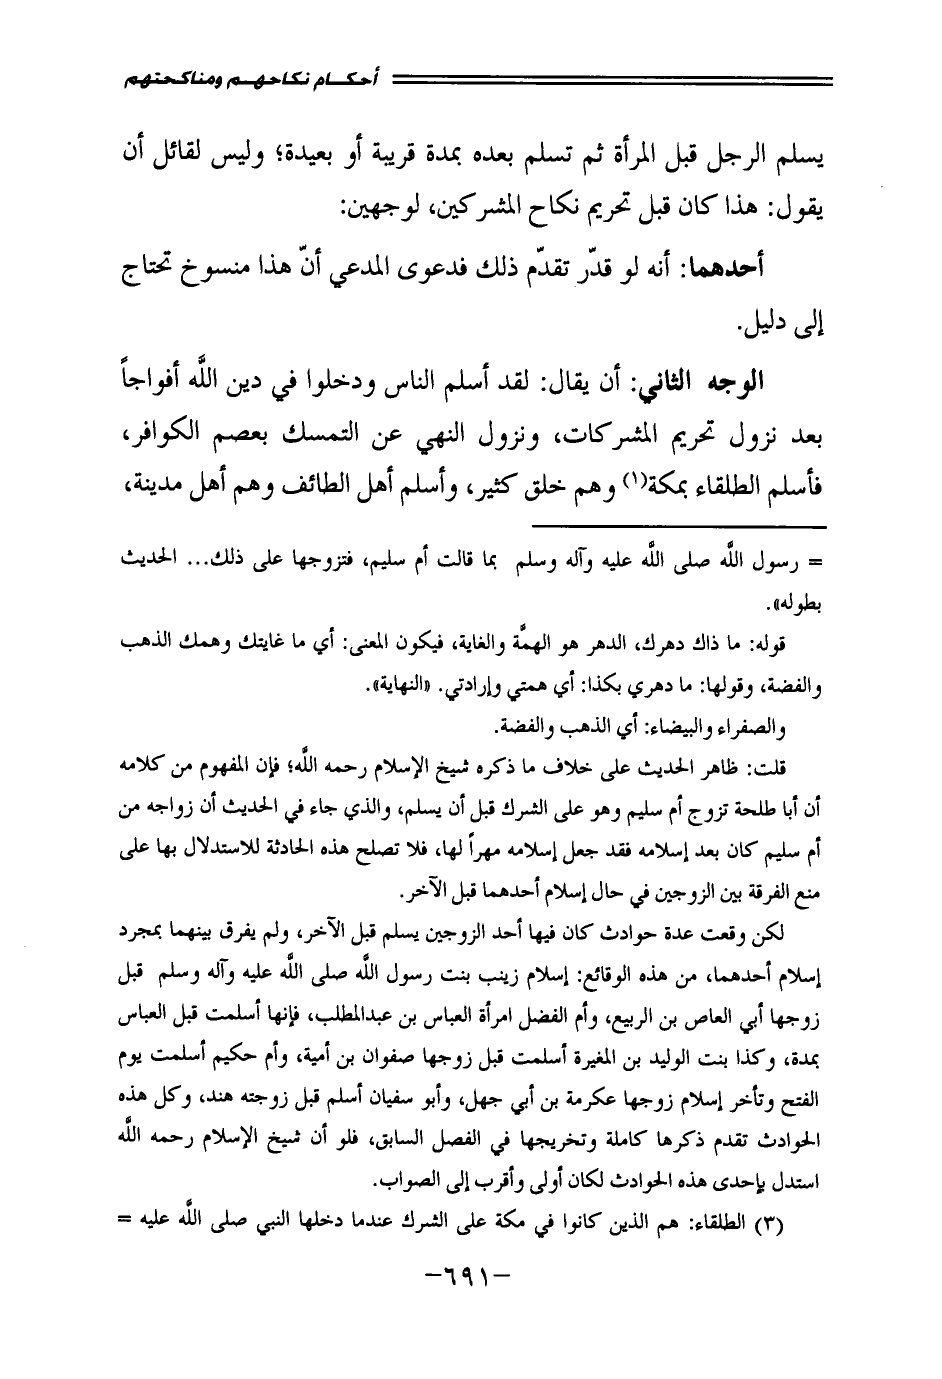 أحكام نكاحهم ومناكحتهم
يسلم الرجل قبل المرأة ثم تسلم بعده بمدة قريبة أو بعيدة؛ وليس لقائل أن
يقول: هذا كان قبل تحريم نكاح المشركين، لوجهين:
أحدهما: أنه لو قدّر تقدّم ذلك فدعوى المدعي أنّ هذا منسوخ تحتاج
إلى دليل.
الوجه الثاني: أن يقال: لقد أسلم الناس ودخلوا في دين اللَّه أفواجاً
بعد نزول تحريم المشركات، ونزول النهي عن التمسك بعصم الكوافر،
فأسلم الطلقاء بمكة(١) وهم خلق كثير، وأسلم أهل الطائف وهم أهل مدينة،
= رسول اللَّه صلى اللَّه عليه وآله وسلم بما قالت أم سليم، فتزوجها على ذلك... الحديث
بطوله».
قوله: ما ذاك دهرك، الدهر هو الهمَّة والغاية، فيكون المعنى: أي ما غايتك وهمك الذهب
والفضة، وقولها: ما دهري بكذا: أي همتي وإرادتي. «النهاية».
والصفراء والبيضاء: أي الذهب والفضة.
قلت: ظاهر الحديث على خلاف ما ذكره شيخ الإسلام رحمه اللَّه؛ فإن المفهوم من كلامه
أن أبا طلحة تزوج أم سليم وهو على الشرك قبل أن يسلم، والذي جاء في الحديث أن زواجه من
أم سليم كان بعد إسلامه فقد جعل إسلامه مهراً لها، فلا تصلح هذه الحادثة للاستدلال بها على
منع الفرقة بين الزوجين في حال إسلام أحدهما قبل الآخر.
لكن وقعت عدة حوادث كان فيها أحد الزوجين يسلم قبل الآخر، ولم يفرق بينهما بمجرد
إسلام أحدهما، من هذه الوقائع: إسلام زينب بنت رسول اللَّه صلى اللَّه عليه وآله وسلم قبل
زوجها أبي العاص بن الربيع، وأم الفضل امرأة العباس بن عبدالمطلب، فإنها أسلمت قبل العباس
بمدة، وكذا بنت الوليد بن المغيرة أسلمت قبل زوجها صفوان بن أمية، وأم حكيم أسلمت يوم
الفتح وتأخر إسلام زوجها عكرمة بن أبي جهل، وأبو سفيان أسلم قبل زوجته هند، وكل هذه
الحوادث تقدم ذكرها كاملة وتخريجها في الفصل السابق، فلو أن شيخ الإسلام رحمه اللَّه
استدل بإحدى هذه الحوادث لكان أولى وأقرب إلى الصواب.
(٣) الطلقاء: هم الذين كانوا في مكة على الشرك عندما دخلها النبي صلى اللَّه عليه =
-٦٩١-